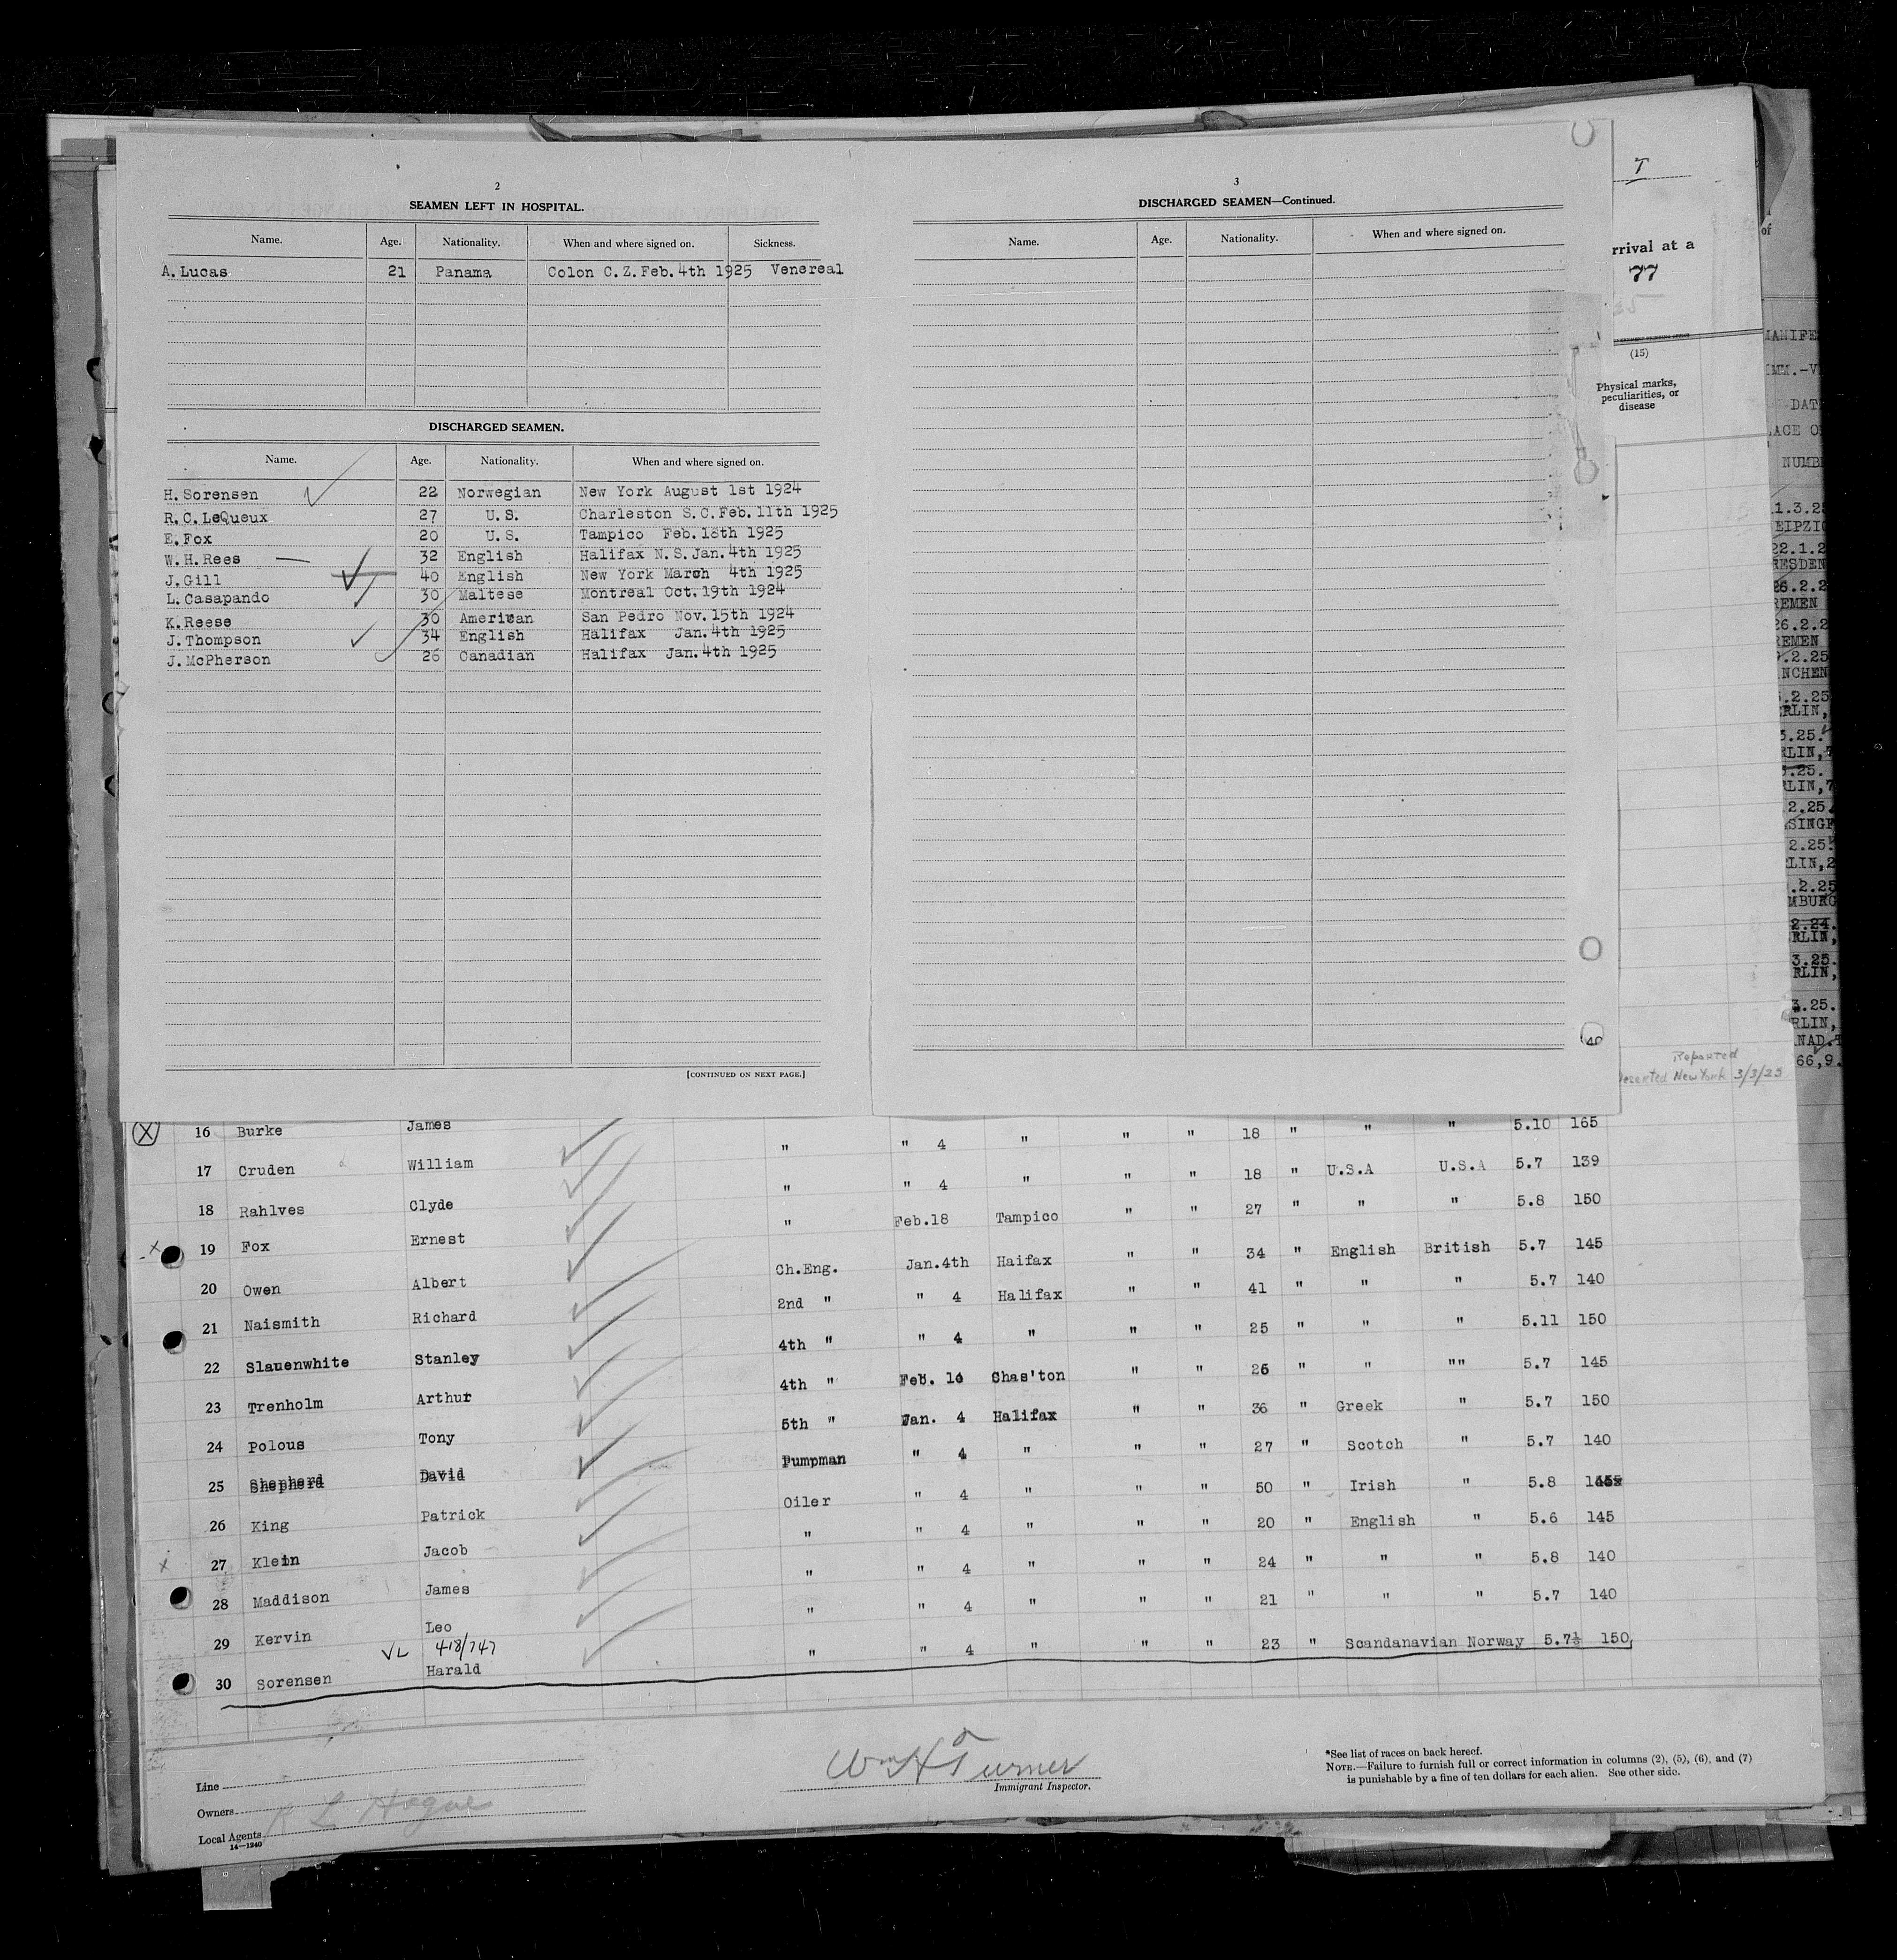 2
SEAMEN LEFT IN HOSPITAL.
Name. Age. Nationality. When and where signed on. Sickness.
A. Lucas 21 Panama Colon C.Z. Feb. 4th 1925 Venereal
DISCHARGED SEAMEN.
Name. Age. Nationality. When and where signed on.
H. Sorensen 22 Norwegian New York August 1st 1924
R.C. LeQueux 27 U.S. Charleston S.C. Feb. 11th 1925
E. Fox 20 U.S. Tampico Feb. 18th 1925
W.H. Rees 32 English Halifax N.S. Jan. 4th 1925
J. Gill 40 English New York March 4th 1925
L. Casapando 30 Maltese Montreal Oct. 19th 1924
K. Reese 30 American San Pedro Nov. 15th 1924
J. Thompson 34 English Halifax Jan. 4th 1925
J. McPherson 26 Canadian Halifax Jan. 4th 1925
[CONTINUED ON NEXT PAGE.]
3
DISCHARGED SEAMEN—Continued.
Name. Age. Nationality. When and where signed on.
T
rrival at a
77
(15)
Physical marks,
peculiarities, or
disease
Reported
Deserted New York 3/3/25
of
MANIFE
IMM.-V
DAT
LACE O
NUMB
1.3.25
EIPZIG
22.1.2
RESDEN
26.2.2
REMEN
26.2.2
REMEN
.2.25
NCHEN
.2.25
RLIN,
3.25.
RLIN,
.25.
RLIN,7
2.25.
SINGF
2.25.
LIN,2
.2.25
MBURG
2.24.
RLIN,
3.25.
RLIN,
3.25.
RLIN,
NAD.
66,9.
16 Burke James " " 4 " " " 18 " " " 5.10 165
17 Cruden William " " 4 " " " 18 " U.S.A U.S.A 5.7 139
18 Rahlves Clyde " Feb.18 Tampico " " 27 " " " 5.8 150
19 Fox Ernest
Ch.Eng. Jan.4th Haifax " " 34 " English British 5.7 145
20 Owen Albert
2nd " " 4 Halifax " " 41 " " " 5.7 140
21 Naismith Richard
4th " " 4 " " " 25 " " " 5.11 150
22 Slauenwhite Stanley
4th " Feb. 10 Chas'ton " " 26 " " "" 5.7 145
23 Trenholm Arthur
5th " Jan. 4 Halifax " " 36 " Greek " 5.7 150
24 Polous Tony
Pumpman " 4 " " " 27 " Scotch " 5.7 140
25 Shepherd David
Oiler " 4 " " " 50 " Irish " 5.8
26 King Patrick
" " 4 " " " 20 " English " 5.6 145
27 Klein Jacob
" " 4 " " " 24 " " " 5.8 140
28 Maddison James
" " 4 " " " 21 " " " 5.7 140
29 Kervin Leo
VL 418/747
" " 4 " " " 23 " Scandanavian Norway 5.7½ 150
30 Sorensen Harald
Line
Owners
Local Agents
14—1240
Wm H Turner
Immigrant Inspector.
*See list of races on back hereof.
NOTE.—Failure to furnish full or correct information in columns (2), (5), (6), and (7)
is punishable by a fine of ten dollars for each alien. See other side.